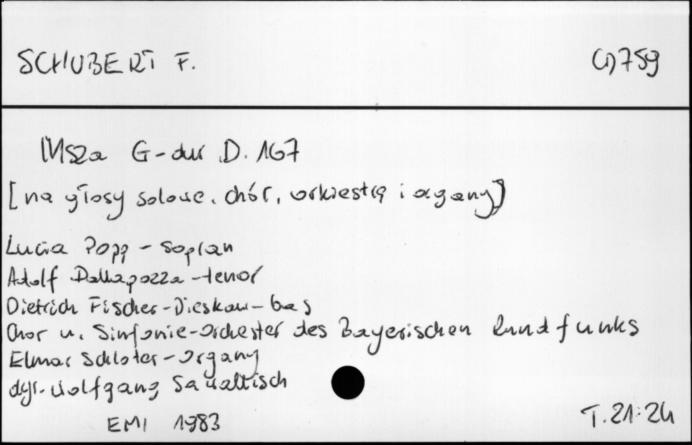 SCHUBERT F.
(J)759
Msza G-dur D. 167
[na głosy solowe, chór, orkiestrę i organy]
Lucia Popp - sopran
Adolf Dallapozza - tenor
Dietrich Fischer-Dieskau - bas
Chor u. Sinfonie-Orchester des Bayerischen Rundfunks
Elmar Schloter - organy
dyr. Wolfgang Sawallisch
EMI 1983
T. 21:24